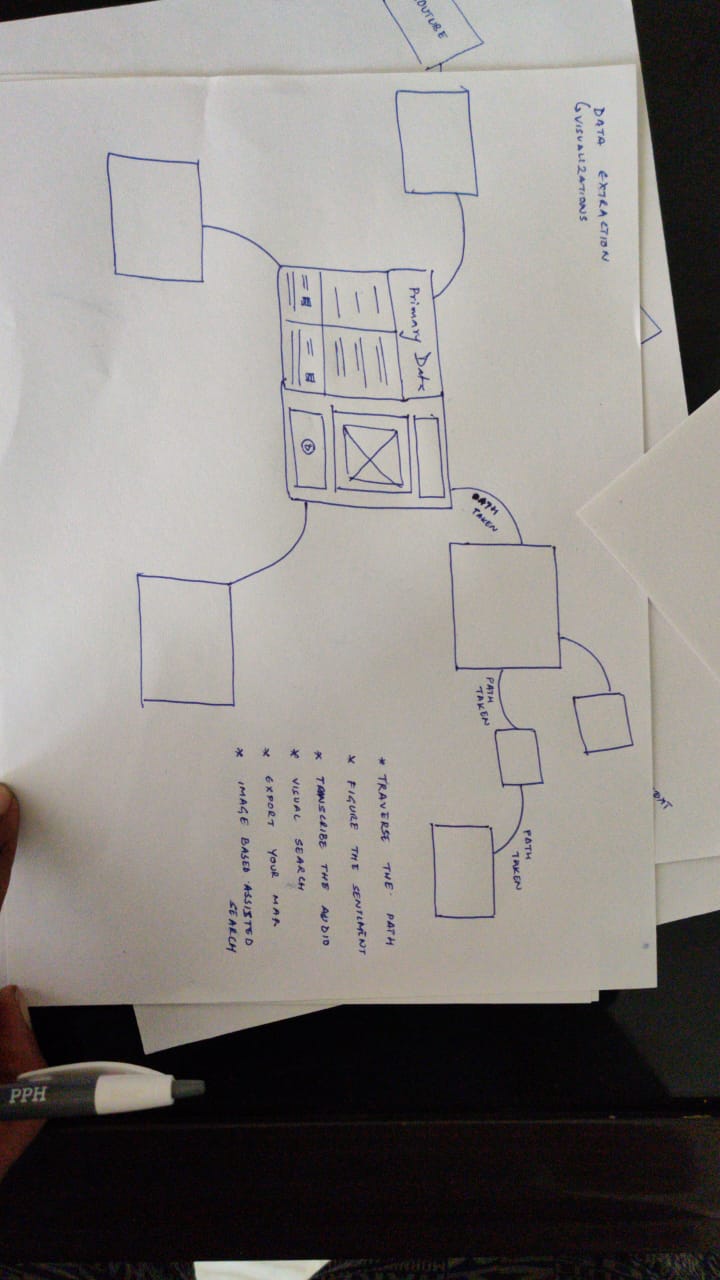 DATA EXTRACTION
↳ VISUALIZATIONS
Primary Data
PATH
TAKEN
PATH
TAKEN
PATH
TAKEN
* TRAVERSE THE PATH
* FIGURE THE SENTIMENT
* TRANSCRIBE THE AUDIO
* VISUAL SEARCH
* EXPORT YOUR MAP
* IMAGE BASED ASSISTED
SEARCH
PPH